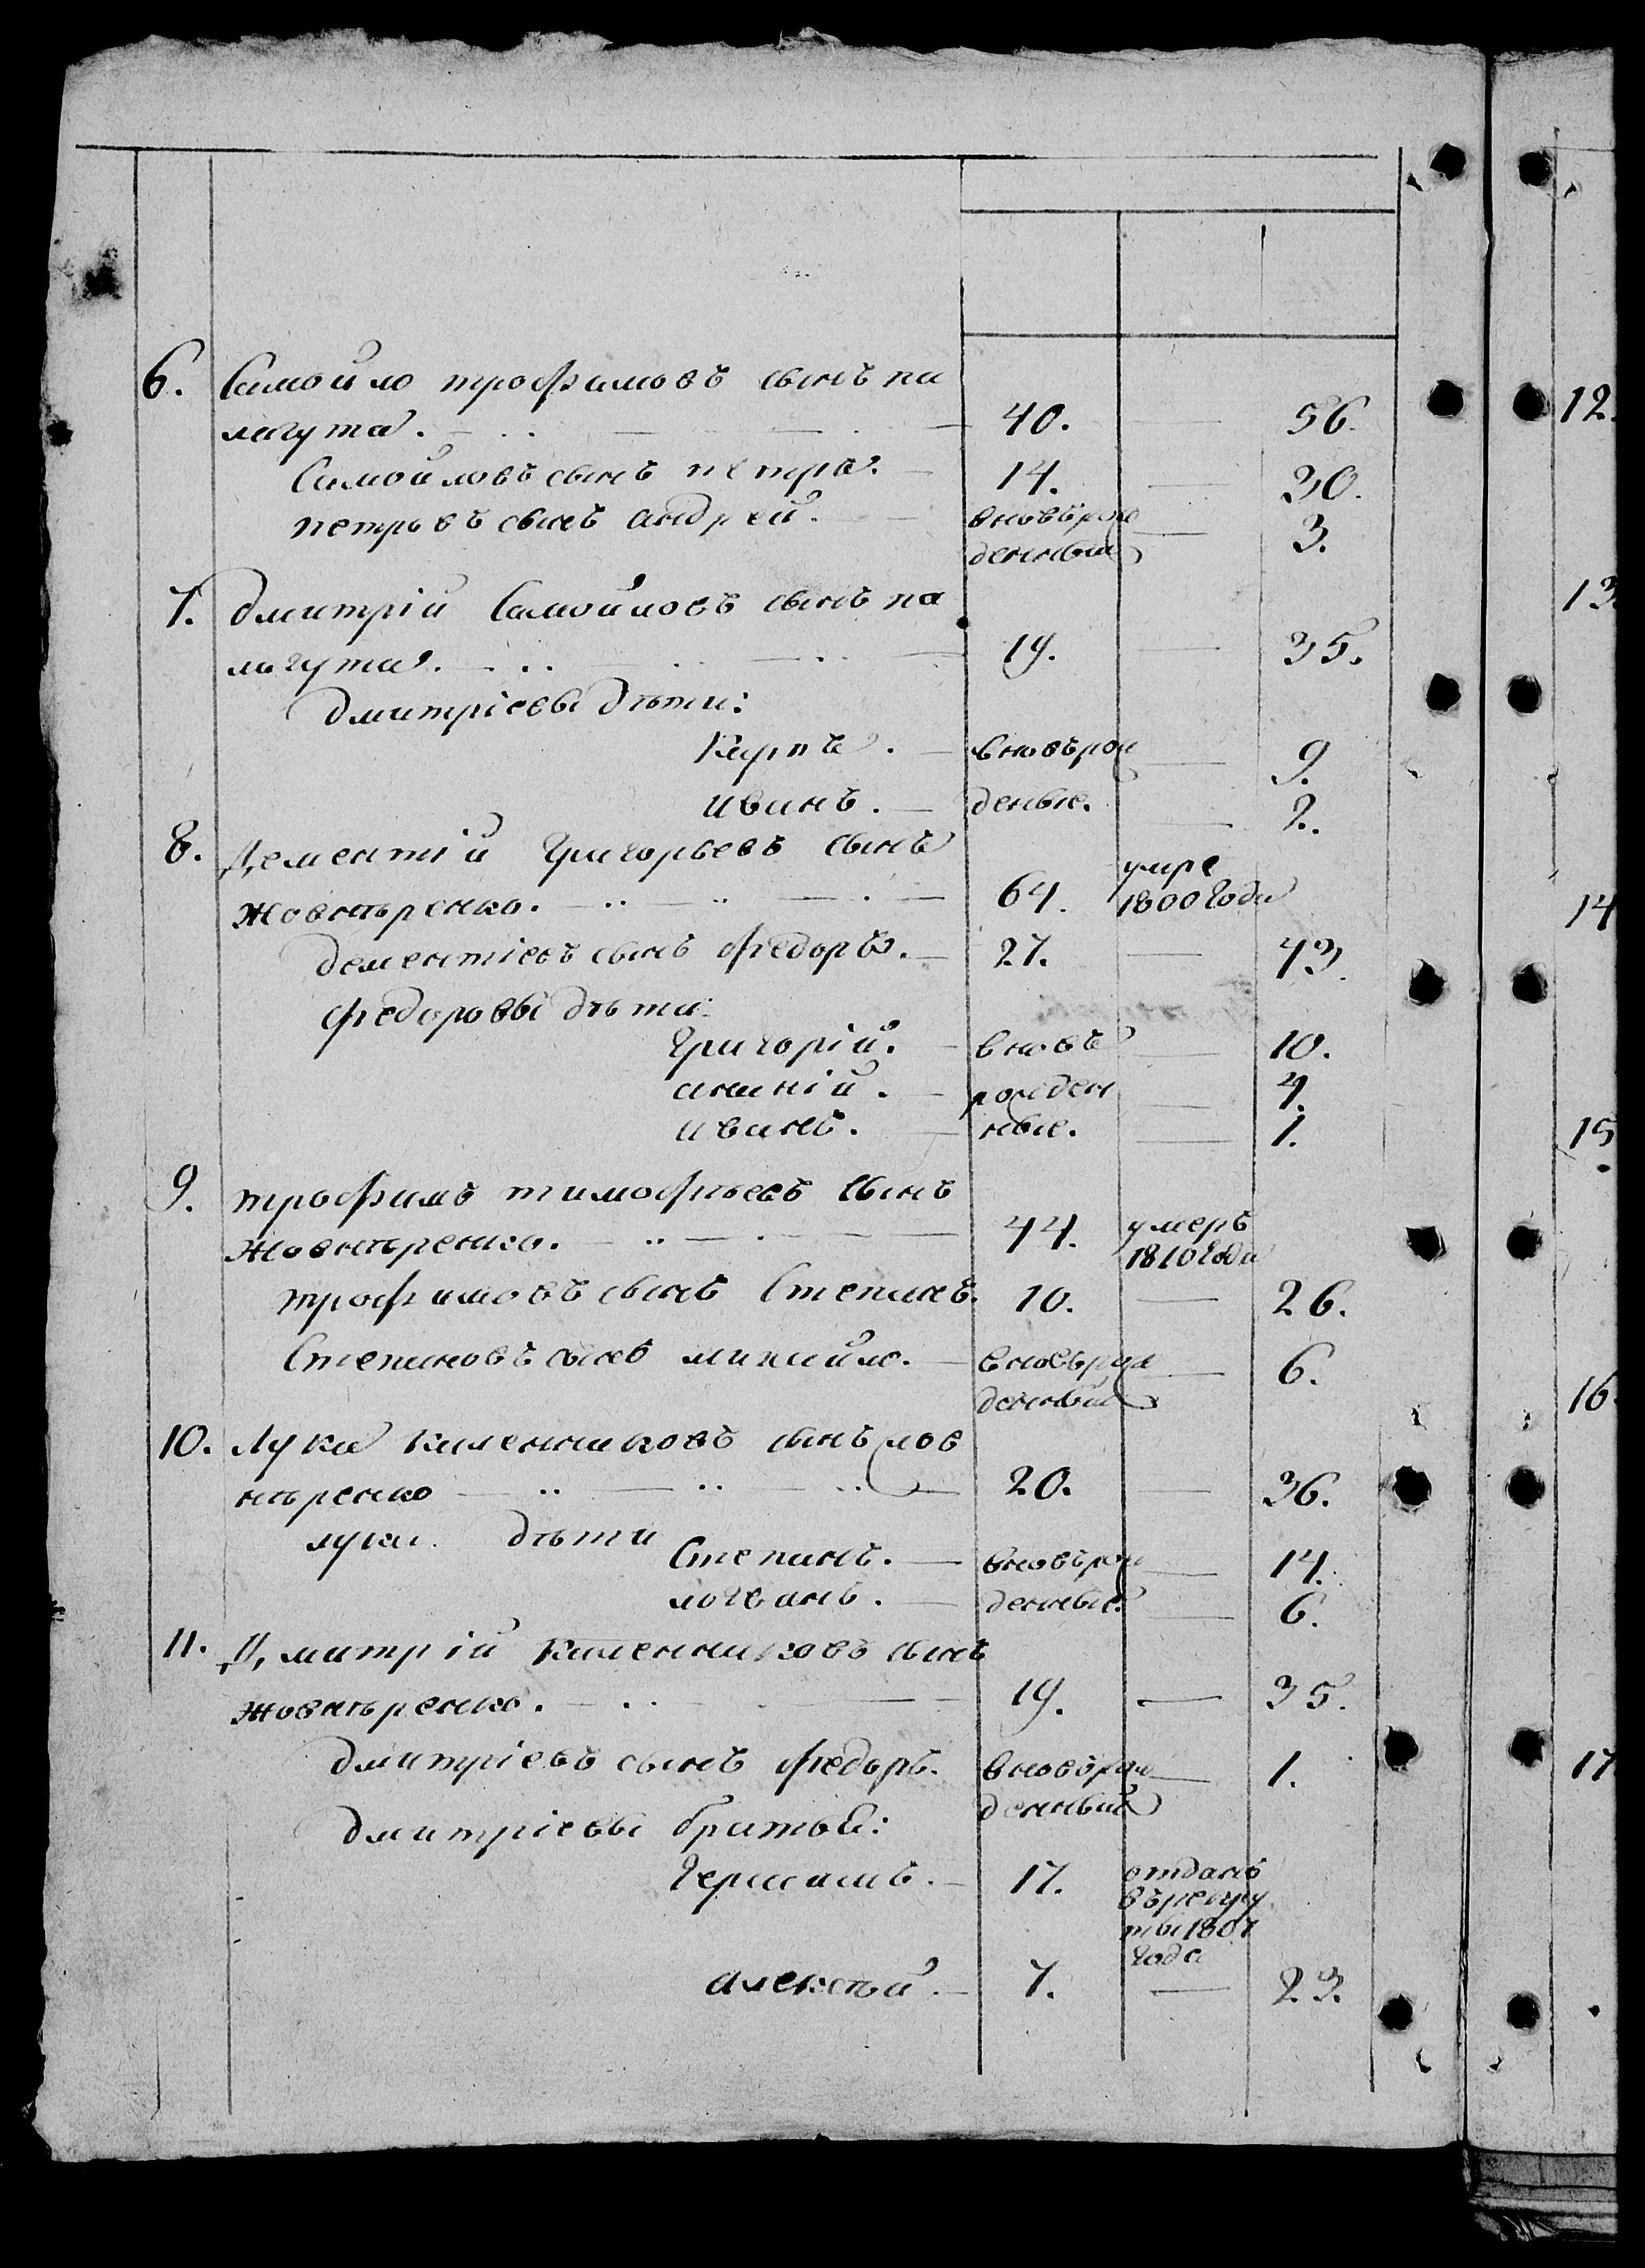 6. Самойло трофимовъ сынъ па
лагута. 40. — 56.
Самойловъ сынъ петръ. 14. — 30.
петровъ сынъ андрей. вновърож — 3.
денный
7. дмитрій Самойловъ сынъ па
лагута. 19. — 35.
дмитріевы дѣти:
Карпъ. вновърож — 9.
иванъ. денные. — 2.
8. Дементій Григорьевъ сынъ
жовнѣренко. 64. умре 1800 года
дементіевъ сынъ федоръ. 27. — 43.
федоровы дѣти:
Григорій. вновь — 10.
ананій. рожден — 4.
иванъ. ные. — 1.
9. трофимъ тимофѣевъ сынъ
жовнѣренко. 44. умеръ 1810 года
трофимовъ сынъ Степанъ. 10. — 26.
Степановъ сынъ михайло. вновьрож — 6.
денный
10. Лука калениковъ сынъ жов
нѣренко 20. — 36.
луки дѣти
Степанъ. вновърож — 14.
логвинъ. денные. — 6.
11. Дмитрій Каленниковъ сынъ
жовнѣренко. 19. — 35.
дмитріевъ сынъ федоръ. вновърож — 1.
денный
дмитріевы братья:
Герасимъ. 17. отданъ
въ рекру
ты 1807
года
алексѣй. 7. — 23.
12.
13.
14
15
16.
17